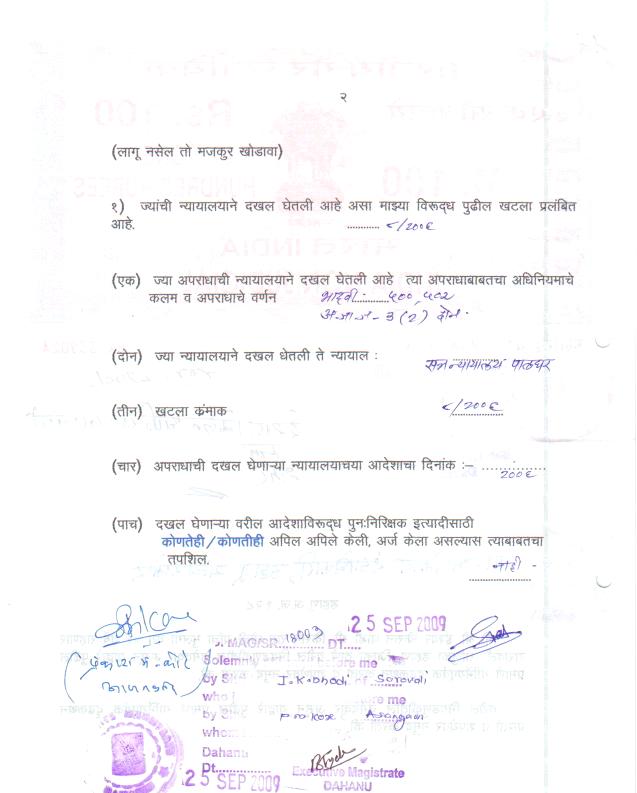 २
(लागू नसेल तो मजकुर खोडावा)
१) ज्यांची न्यायालयाने दखल घेतली आहे असा माझ्या विरूद्ध पुढील खटला प्रलंबित
आहे. ............ ८/२००६
(एक) ज्या अपराधाची न्यायालयाने दखल घेतली आहे त्या अपराधाबाबतचा अधिनियमाचे
कलम व अपराधाचे वर्णन भादवी :......... ५००, ५०२
३ (२) दोन.
(दोन) ज्या न्यायालयाने दखल धेतली ते न्यायाल : सत्र न्यायालय पालघर
(तीन) खटला कंमाक ८/२००६
(चार) अपराधाची दखल घेणाऱ्या न्यायालयाचया आदेशाचा दिनांक :– ................
२००६
(पाच) दखल घेणाऱ्या वरील आदेशाविरूद्ध पुनःनिरिक्षक इत्यादीसाठी
कोणतेही/कोणतीही अपिल अपिले केली, अर्ज केला असल्यास त्याबाबतचा
तपशिल. नाही -
25 SEP 2009
MAG/SR. 18003 DT.....
Solemnly before me
by Shri J.K.Dhodi of Saravali
who me
by Shri Asangaon
whom
Dahanu
Dt..............
25 SEP 2009
Executive Magistrate
DAHANU